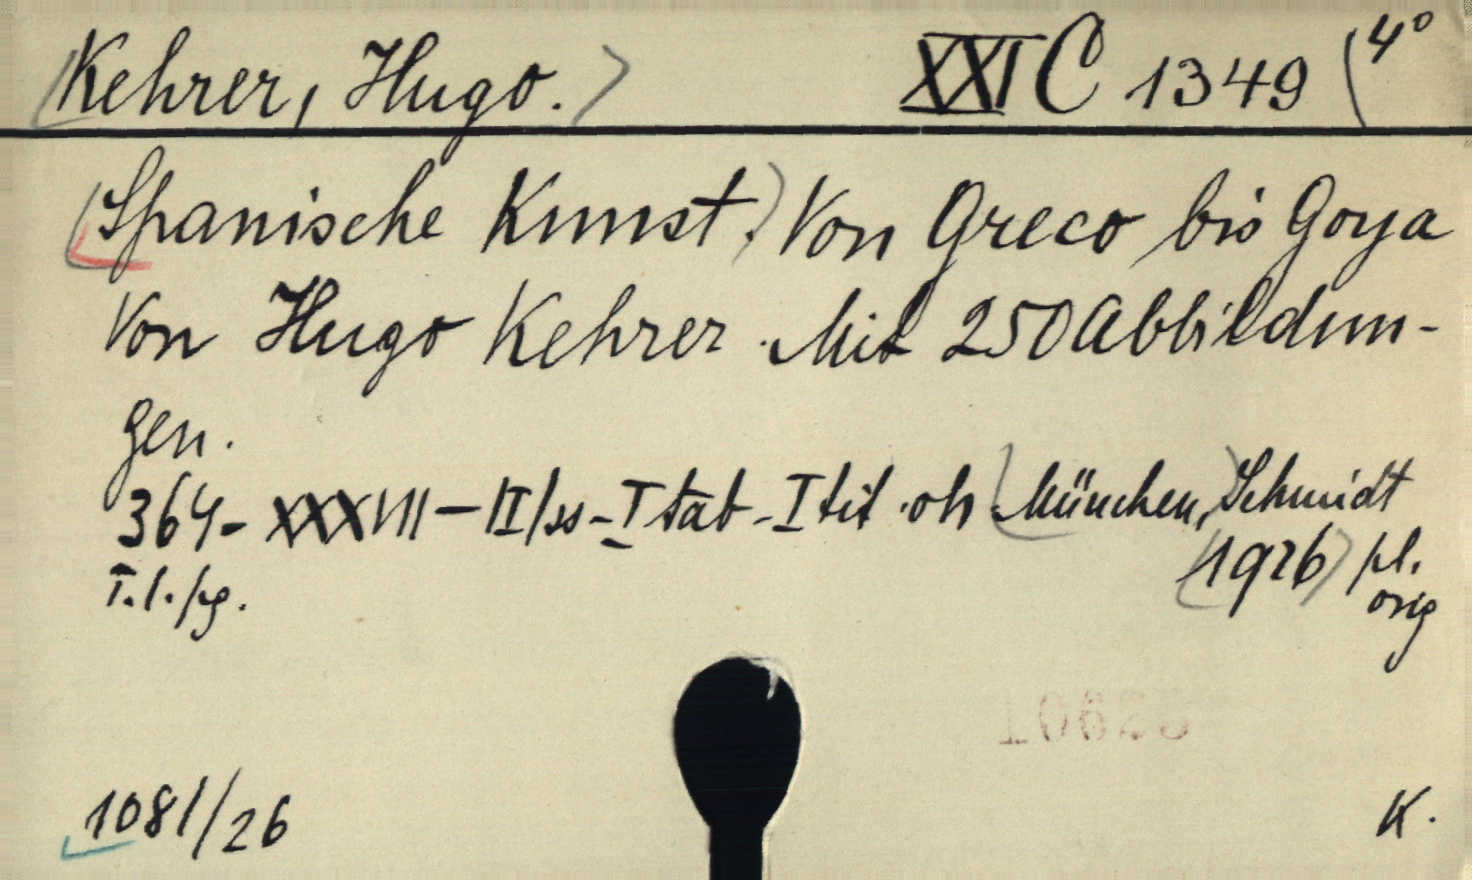 (Kehrer, Hugo.) XXI C 1349 (4°
(Spanische Kunst.) Von Greco bis Goya
Von Hugo Kehrer. Mit 250 Abbildun-
gen.
364 - XXXVII - II/ss - I tab - I tit. oh (München,) Schmidt
(1926) pl.
T. l. pg. orig
1081/26 K.